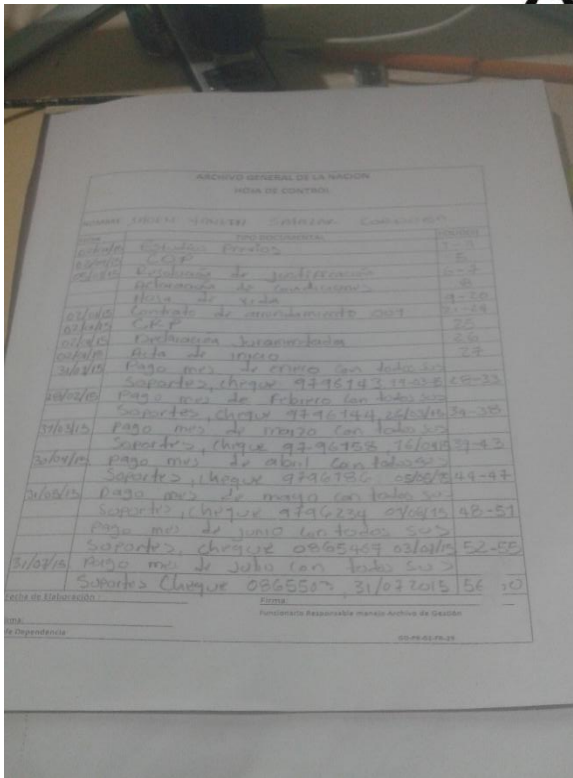 ARCHIVO GENERAL DE LA NACION
HOJA DE CONTROL
NOMBRE Salazar
FECHA TIPO DOCUMENTAL FOLIO(S)
Estudios Previos
CDP 5
Resolución de justificación 6-7
de condiciones 8
Hoja de vida 9-20
02/01/15 Contrato de arrendamiento 001
02/01/15 C.R.P 25
02/01/15 Declaración Juramentada 26
02/01/15 Acta de inicio 27
31/01/15 Pago mes de enero con todos sus
Soportes, cheque 9796143 28-33
28/02/15 Pago mes de Febrero con todos sus
Soportes, cheque 9796144, 34-38
31/03/15 Pago mes de marzo con todos sus
Soportes, cheque 97-96158, 39-43
30/04/15 Pago mes de abril con todos sus
Soportes, cheque 9796186 05/05/15 44-47
31/05/15 Pago mes de mayo con todos sus
Soportes, cheque 9796234 48-51
Pago mes de junio con todos sus
Soportes, cheque 03/07/15 52-55
31/07/15 Pago mes de Julio con todos sus
Soportes Cheque 31/07/2015 56
Fecha de Elaboración: Firma:
Funcionario Responsable manejo Archivo de Gestión
Dependencia